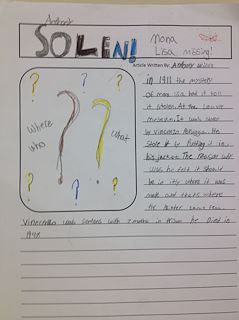 Artfact
SOLEN!
mona
Lisa missing!
Article Written By:
Where
who
What
in 1911 the mystery
of mona lisa had it told
it stolen. At the Louvre
museum. It was stolen
by vincenzo Perugia. He
stole it by Putting it in
his jacket. The reason
was he felt it should
be in itly where it was
made and thats where
the Painter
Vincenzo was sentens with 7 months in Prison he Died in